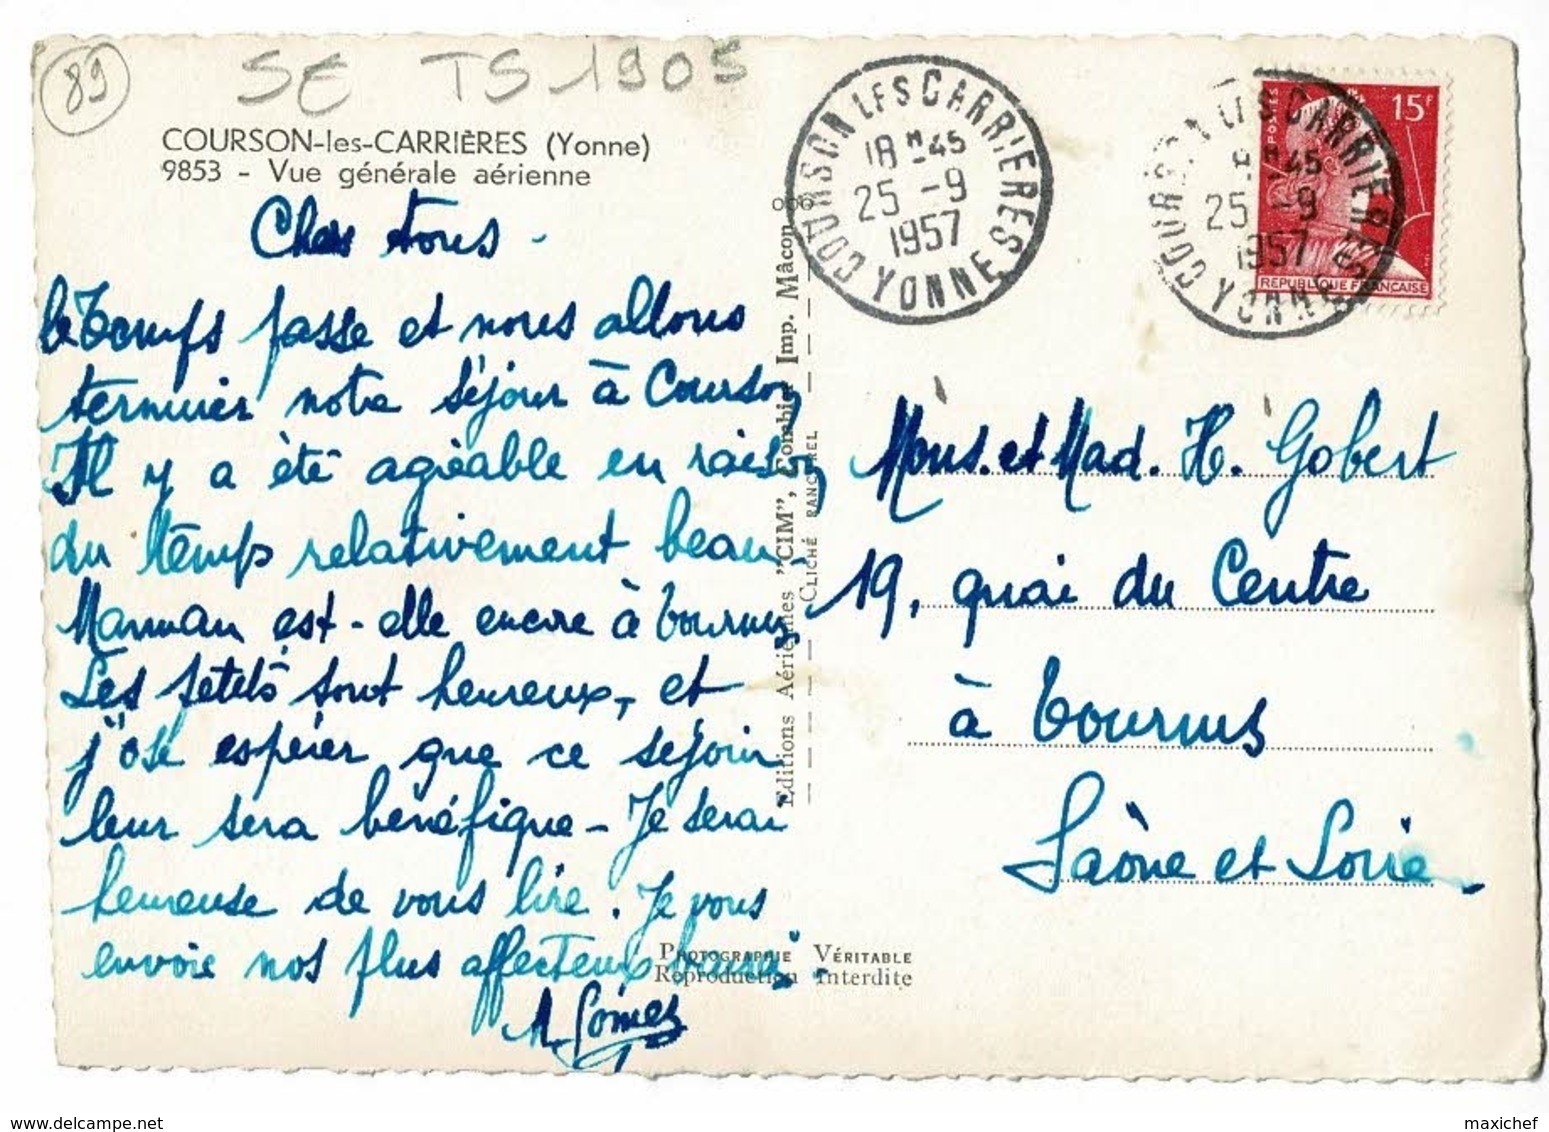 89
SE TS 1905
COURSON-les-CARRIÈRES (Yonne)
9853 - Vue générale aérienne
Chers tous -
le temps passe et nous allons
terminer notre séjour à Courson
Il y a été agréable en raison
du temps relativement beau -
Maman est-elle encore à Tournus
Les petits sont heureux, et
j'ose espérer que ce séjour
leur sera bénéfique - Je serai
heureuse de vous lire. Je vous
envoie nos plus affectueux baisers.
M. Gomez
Editions Aériennes "CIM", Combier Imp. Mâcon
CLICHÉ RANCUREL
PHOTOGRAPHIE VÉRITABLE
Reproduction Interdite
COURSON LES CARRIERES
18H45
25 -9
1957
YONNE
COURSON LES CARRIERES
18H45
25 -9
1957
YONNE
POSTES
15F
RÉPUBLIQUE FRANÇAISE
Mons. et Mad. H. Gobert
19, quai du Centre
à Tournus
Saône et Loire
delcampe.net
maxichef